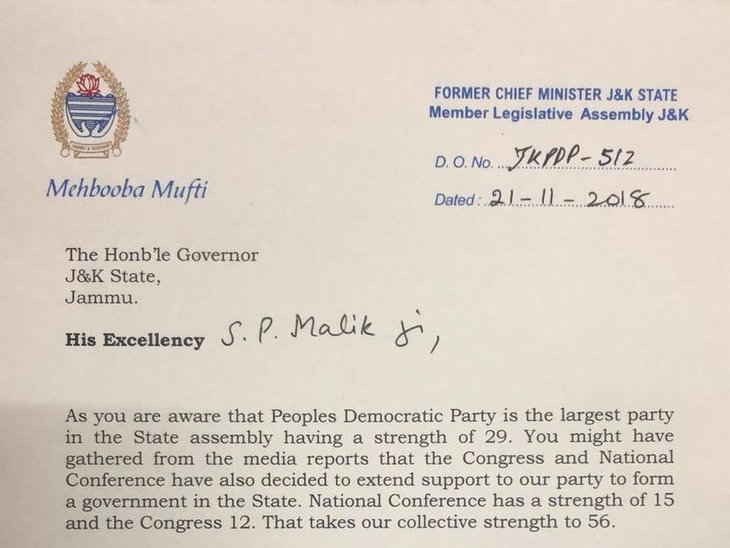 FORMER CHIEF MINISTER J&K STATE
Member Legislative Assembly J&K
D. O. No. JKPDP-512
Dated: 21-11-2018
Mehbooba Mufti
The Honb'le Governor
J&K State,
Jammu.
His Excellency S. P. Malik ji,
As you are aware that Peoples Democratic Party is the largest party
in the State assembly having a strength of 29. You might have
gathered from the media reports that the Congress and National
Conference have also decided to extend support to our party to form
a government in the State. National Conference has a strength of 15
and the Congress 12. That takes our collective strength to 56.